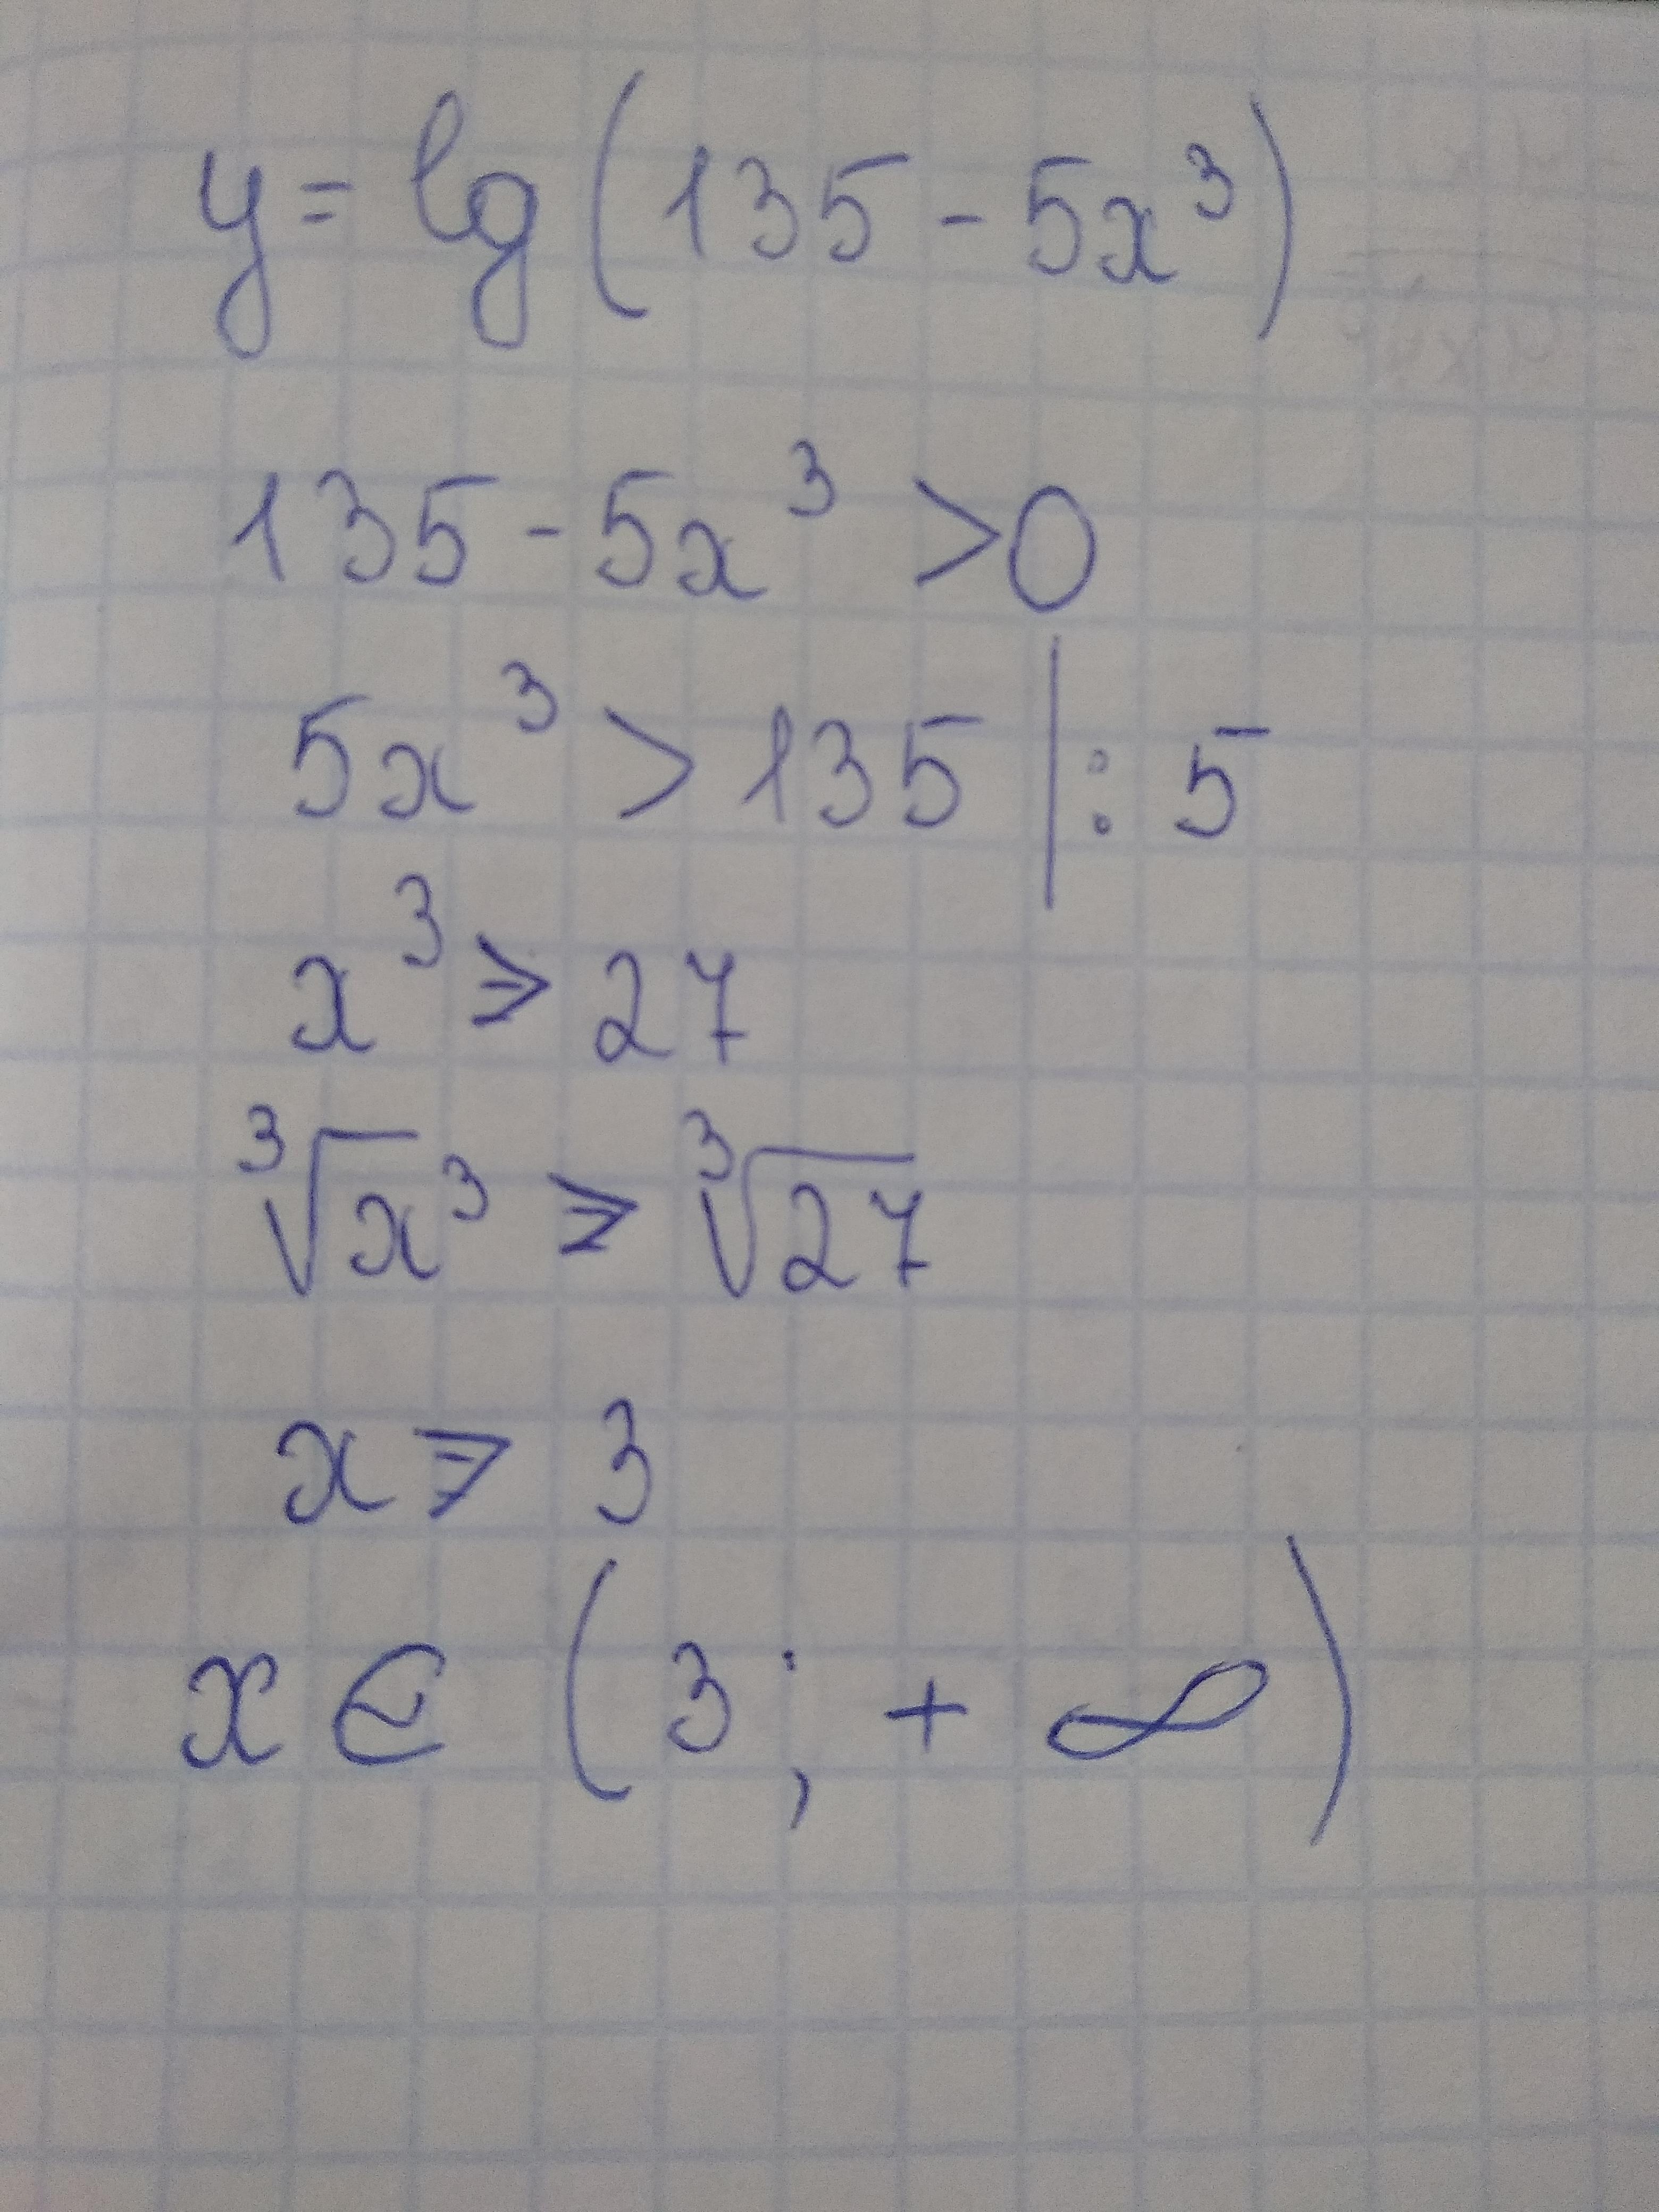 y = lg (135 - 5x³)
135 - 5x³ > 0
5x³ > 135 | : 5
x³ ⩾ 27
³√x³ ⩾ ³√27
x ⩾ 3
x ∈ (3; + ∞)